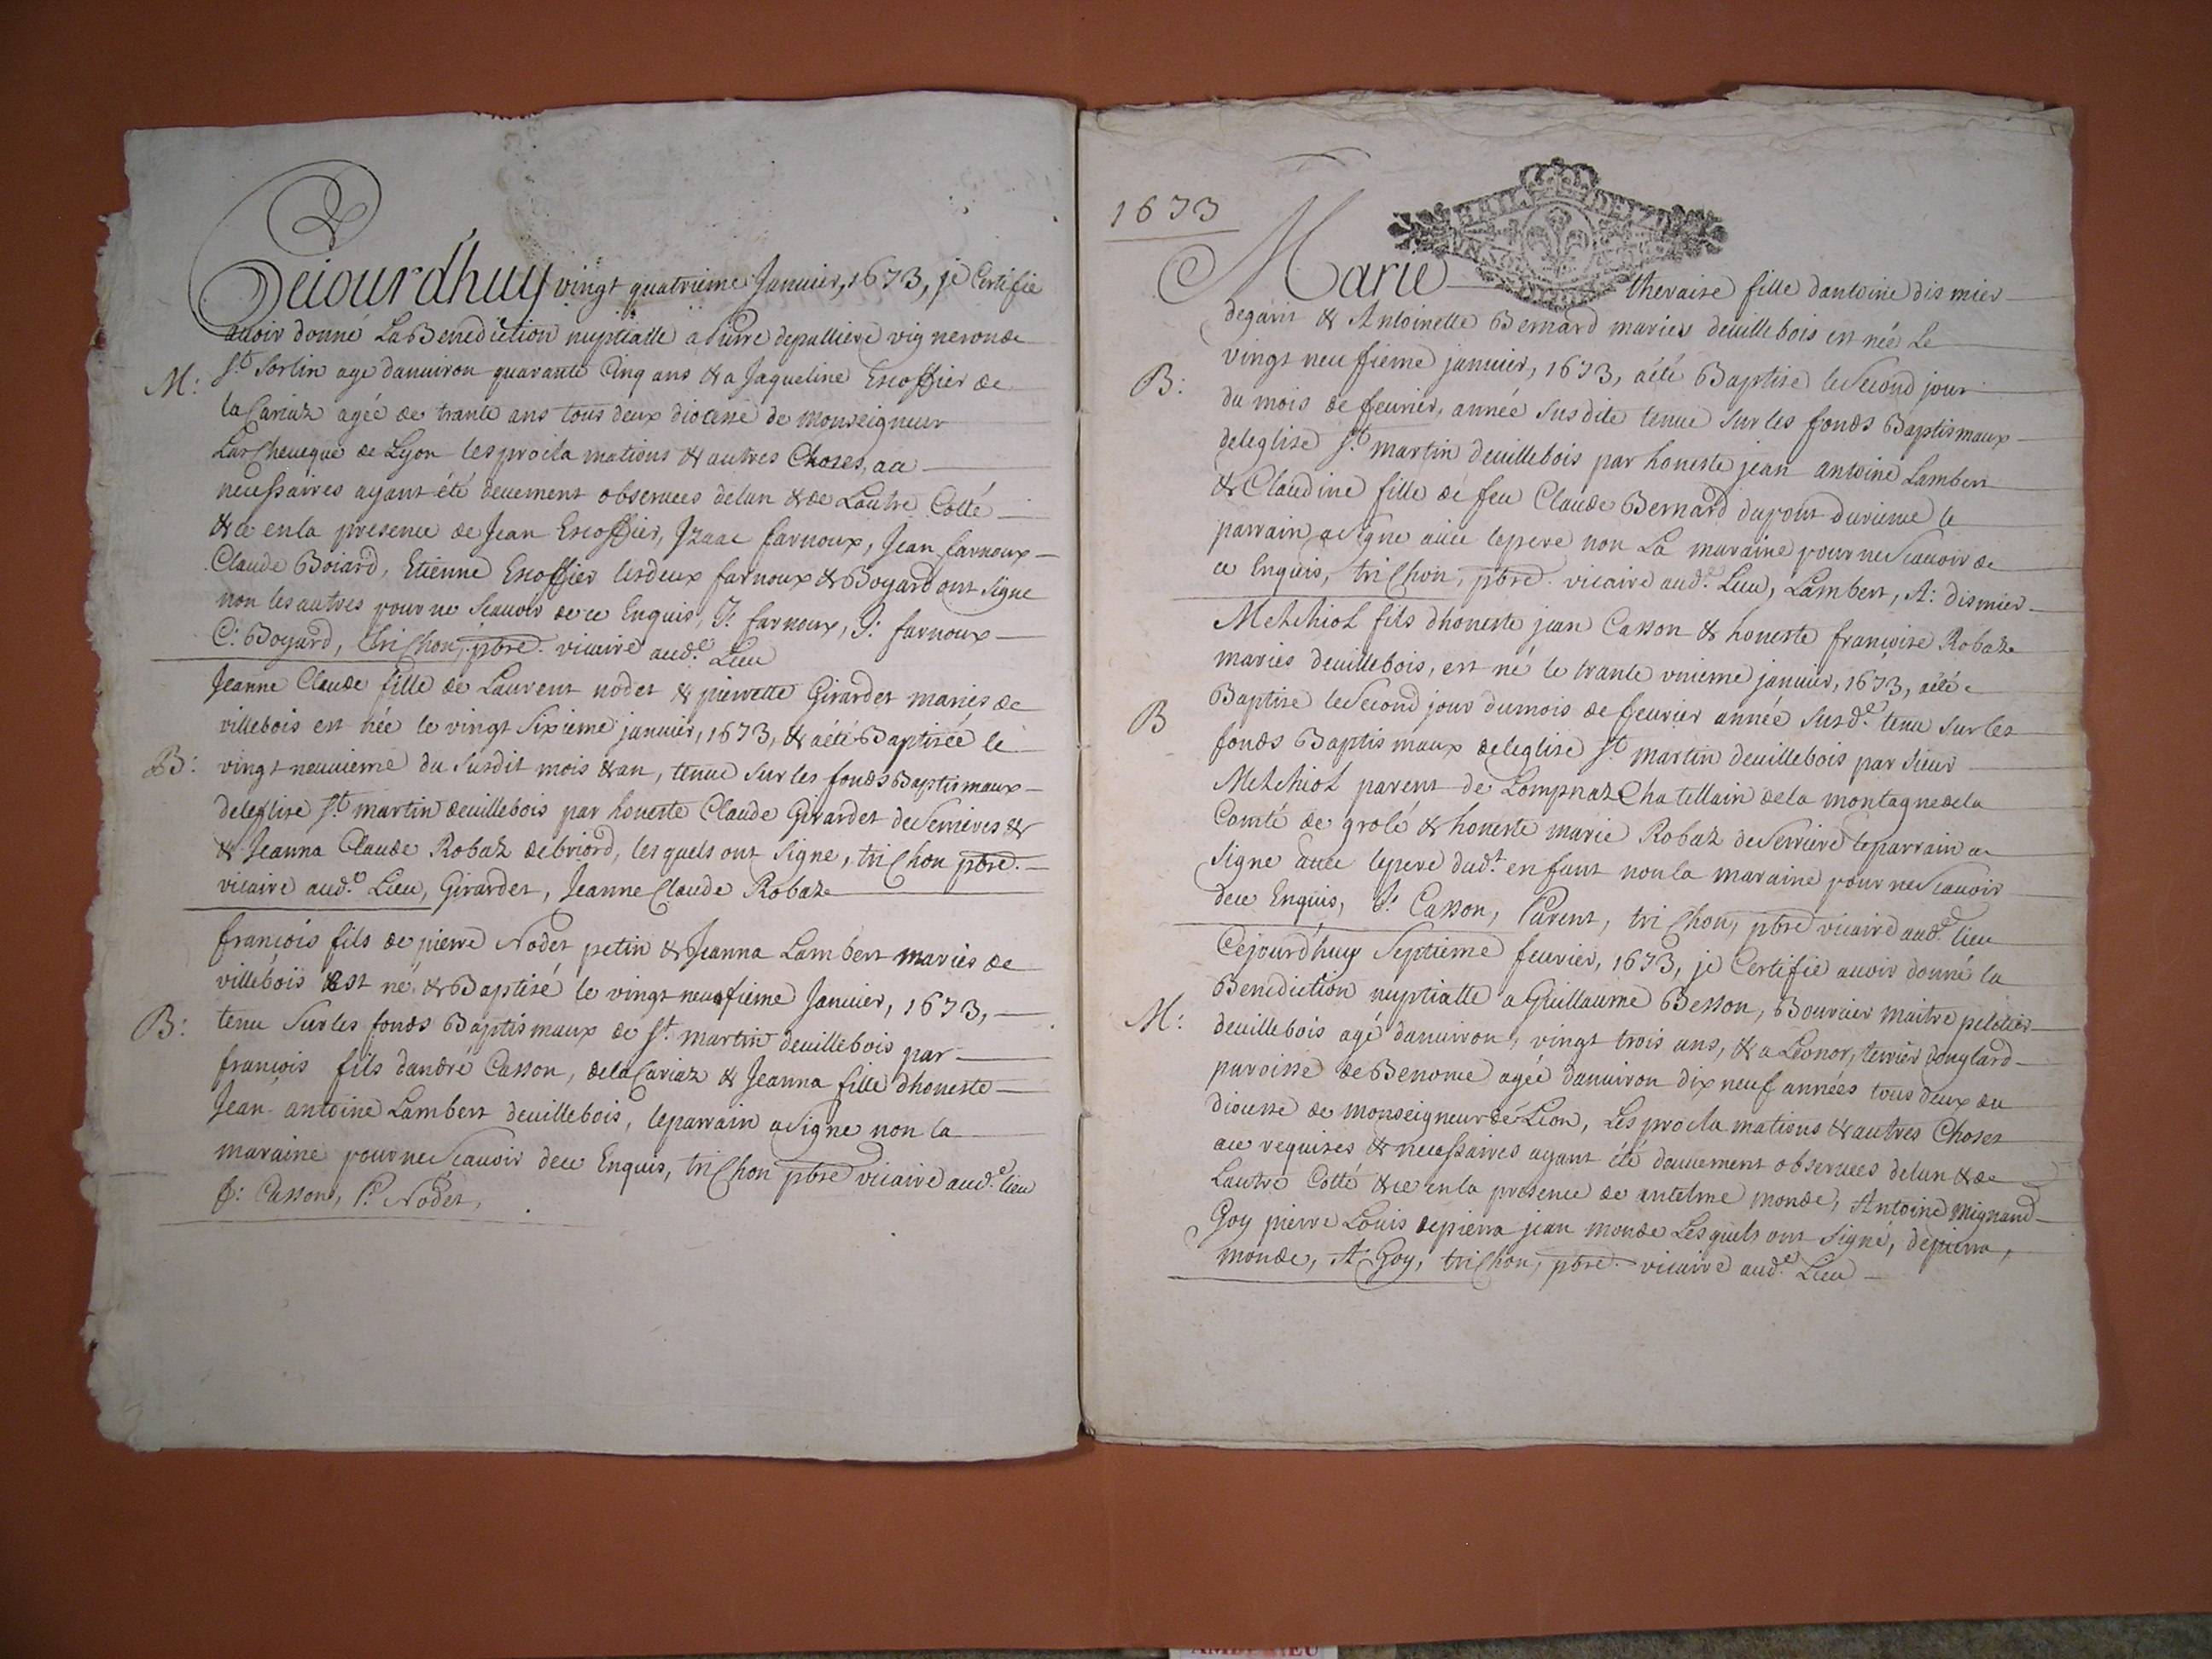 Cejourdhuy vingt quatrieme Januier, 1673, je Certifie
auoir donné La Benediction nuptialle a Pierre depalliere vigneron de
M: St Sorlin age danuiron quarante Cinq ans & a Jaqueline Escoffier de
la Cariaz agée de trante ans tous deux diocesse de monseigneur
Larcheueque de Lyon les proclamations & autres Choses, a ce
necessaires ayant été deuement obseruees delun & de Lautre Cotté
& ce en la presence de Jean Escoffier, Jzaac farnoux, Jean farnoux
Claude Boiard, Etienne Escoffier les deux farnoux & Boyard ont signe
non les autres pour ne scauoir de ce Enquis, J: farnoux, J: farnoux
C: Boyard, trichon, pbre. vicaire aud. Lieu
Jeanne Claude fille de Laurent nodet & pierrette Girardet maries de
villebois est née le vingt Sixieme januier, 1673, & a été Baptisée le
B: vingt neuuieme du susdit mois & an, tenue sur les fonds Baptismaux
deleglise St martin deuillebois par honeste Claude Girardet de Serrieres &
& Jeanna Claude Robaz de briord, lesquels ont signe, trichon pbre.
vicaire aud. Lieu, Girardet, Jeanne Claude Robaz
francois fils de pierre Nodet petin & Jeanna Lambert maries de
villebois est né & Baptisé le vingt neufieme Januier, 1673,
B: tenu sur les fonds Baptismaux de St martin deuillebois par
francois fils dandré Casson, dela Cariaz & Jeanna fille dhoneste
Jean antoine Lambert deuillebois, le parrain a signe non la
maraine pour ne scauoir de ce Enquis, trichon pbre vicaire aud. lieu
f: Casson, P. Nodet,
1673
Marie theraise fille dantoine dismier
degarit & Antoinette Bernard maries deuillebois est née le
vingt neuffieme januier, 1673, a été Baptise le Second jour
B: du mois de feurier, année susdite tenue sur les fonds Baptismaux
deleglise St martin deuillebois par honeste jean antoine Lambert
& Claudine fille de feu Claude Bernard du pont durieme le
parrain a signe auec le pere non La maraine pour ne scauoir de
ce Enquis, trichon, pbre. vicaire aud. Lieu, Lambert, A: dismier
Melchiol fils dhoneste jean Casson & honeste francoise Robaz
maries deuillebois, est né le trante vnieme januier, 1673, a été
B Baptise le Second jour du mois de feurier année susd. tenu sur les
fonds Baptismaux deleglise St martin deuillebois par sieur
Melchiol parent de Lompnaz Chatellain dela montagne dela
Comté de grolé & honeste marie Robaz de Serriere le parrain a
signe auec le pere dud. enfant non la maraine pour ne scauoir
de ce Enquis, J. Casson, Parent, trichon, pbre vicaire aud. lieu
Cejourdhuy Septieme feurier, 1673, je Certifie auoir donné la
Benediction nuptialle a Guillaume Besson, Bouruier maitre peletier
M: deuillebois agé danuiron, vingt trois ans, & a Leonor, terrier douglard
paroisse de Benonce agée danuiron dix neuf années tous deux du
diocesse de monseigneur de Lion, Les proclamations & autres Choses
a ce requises & necessaires ayant été deuement obseruees delun & de
Lautre Cotté & ce en la presence de antelme monde, Antoine mignand
Goy pierre Louis depierra jean monde Lesquels ont signé, depierra,
monde, A Goy, trichon, pbre. vicaire aud. Lieu